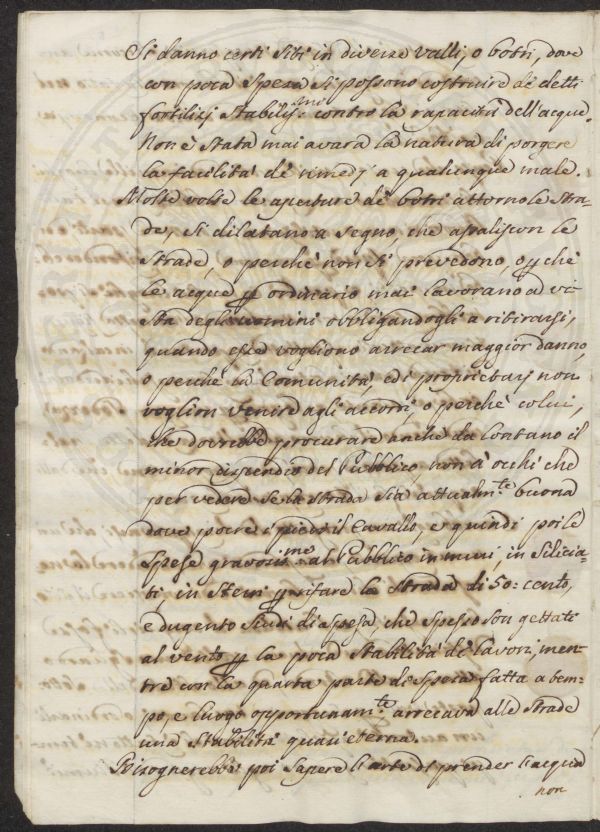 Si danno certi siti in diverse valli, o botri, dove
con poca spesa si possono costruire de' detti
fortilizj stabiliss:mi contro la rapacità dell'acque.
Non è stata mai avara la natura di porgere
la facilità de' rimedj a qualunque male.
Molte volte le aperture de' botri attorno le stra-
de, si dilatano a segno, che assaliscon le
strade, o perchè non si prevedono, o pchè
le acque p ordinario mai lavorano a vi-
sta degli uomini obbligandogli a ritirarsi,
quando esse vogliono arrecar maggior danno,
o perchè la Comunità, ed i proprietarj non
voglion venire agli accordi, o perchè colui,
che dovrebbe procurare anche da lontano il
minor dispendio del Pubblico, non à occhi che
per vedere se la strada sia attualm:te buona
dove pone i piedi il Cavallo, e quindi poi le
spese gravosis:me al Pubblico in muri, in silicia-
ti, in sterri p rifare la strada di 50: cento,
e dugento scudi di spesa, che spesso son gettati
al vento p la poca stabilità de' lavori, men-
tre con la quarta parte di spesa fatta a tem-
po, e luogo opportunam:te arrecava alle strade
una stabilità quasi eterna.
Bisognerebbe poi sapere l'arte di prender l'acqua
non